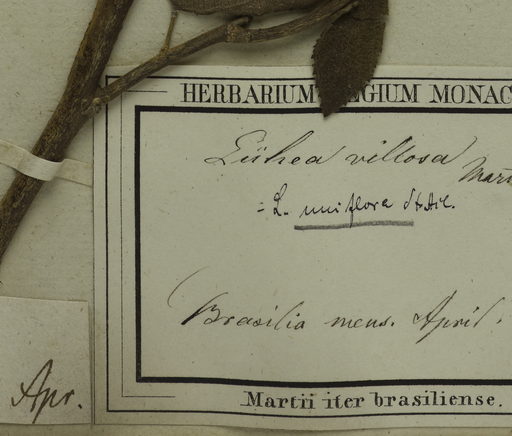 HERBARIUM REGIUM MONAC
Lühea villosa Mart
= L. uniflora St. Hil.
Brasilia mens. April.
Martii iter brasiliense.
Apr.